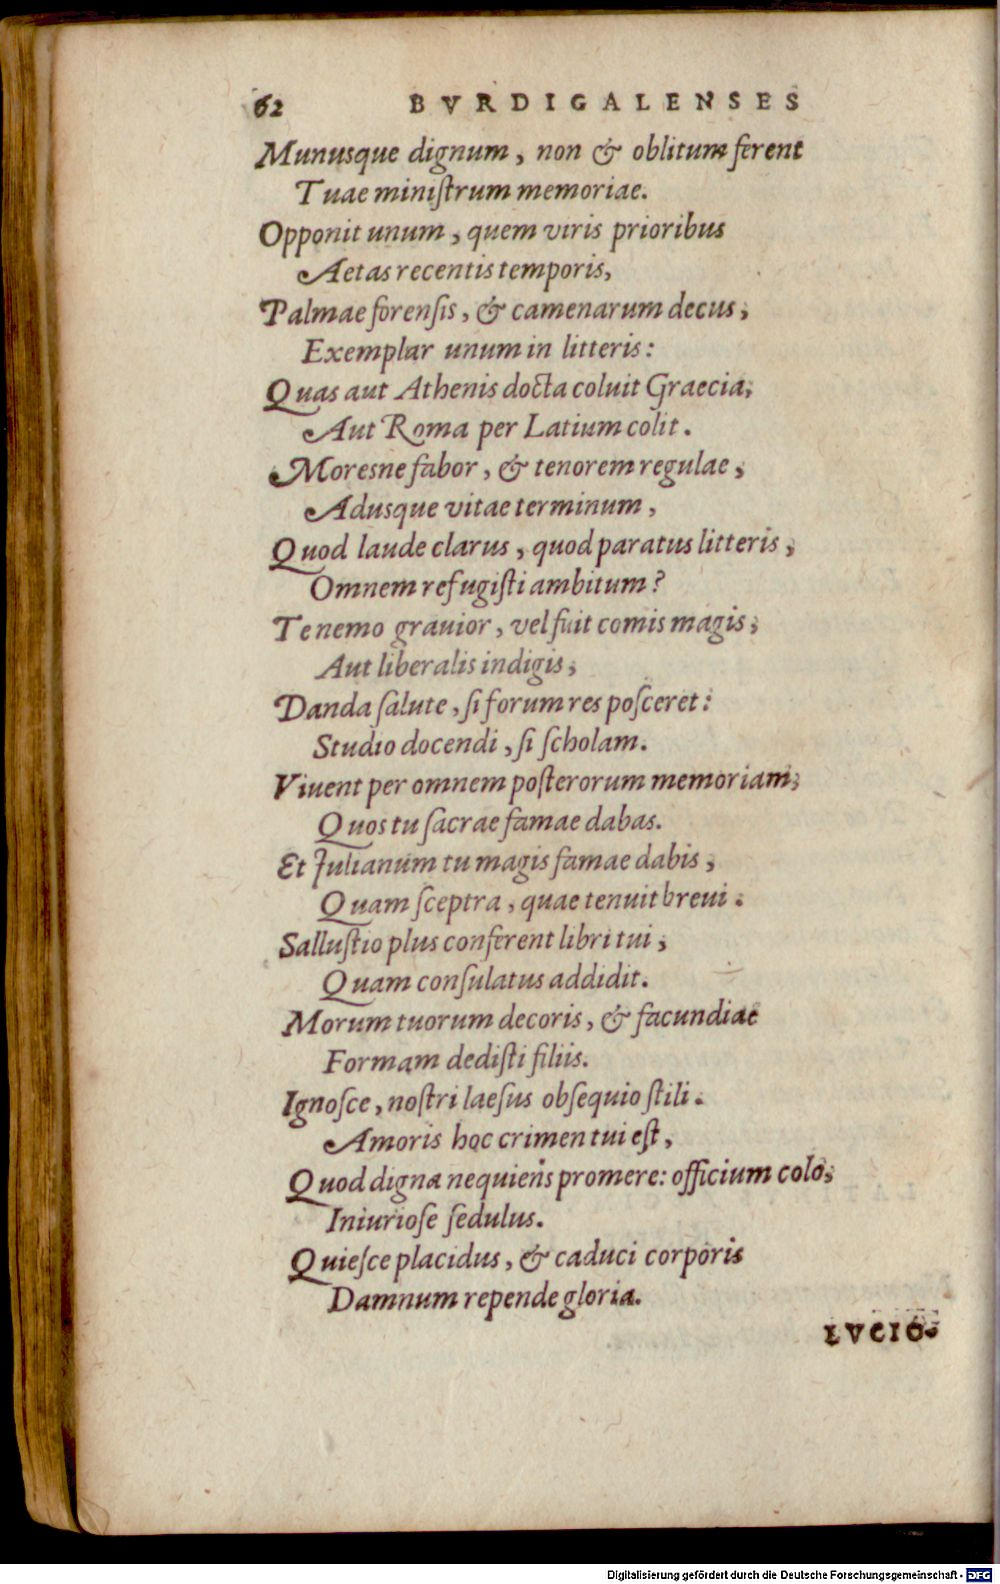 62 BVRDIGALENSES
Munusque dignum, non & oblitum ferent
Tuae miniſtrum memoriae.
Opponit unum, quem viris prioribus
Aetas recentis temporis,
Palmae forenſis, & camenarum decus,
Exemplar unum in litteris:
Quas aut Athenis docta coluit Graecia,
Aut Roma per Latium colit.
Moresne fabor, & tenorem regulae,
Adusque vitae terminum,
Quod laude clarus, quod paratus litteris,
Omnem refugiſti ambitum?
Te nemo grauior, vel fuit comis magis,
Aut liberalis indigis,
Danda ſalute, ſi forum res poſceret:
Studio docendi, ſi ſcholam.
Viuent per omnem poſterorum memoriam,
Quos tu ſacrae famae dabas.
Et Julianum tu magis famae dabis,
Quam ſceptra, quae tenuit breui.
Salluſtio plus conferent libri tui,
Quam conſulatus addidit.
Morum tuorum decoris, & facundiae
Formam dediſti filiis.
Ignoſce, noſtri laeſus obſequio ſtili.
Amoris hoc crimen tui eſt,
Quod digna nequiens promere: officium colo,
Iniurioſe ſedulus.
Quieſce placidus, & caduci corporis
Damnum repende gloria.
LVCIO.
Digitalisierung gefördert durch die Deutsche Forschungsgemeinschaft - DFG